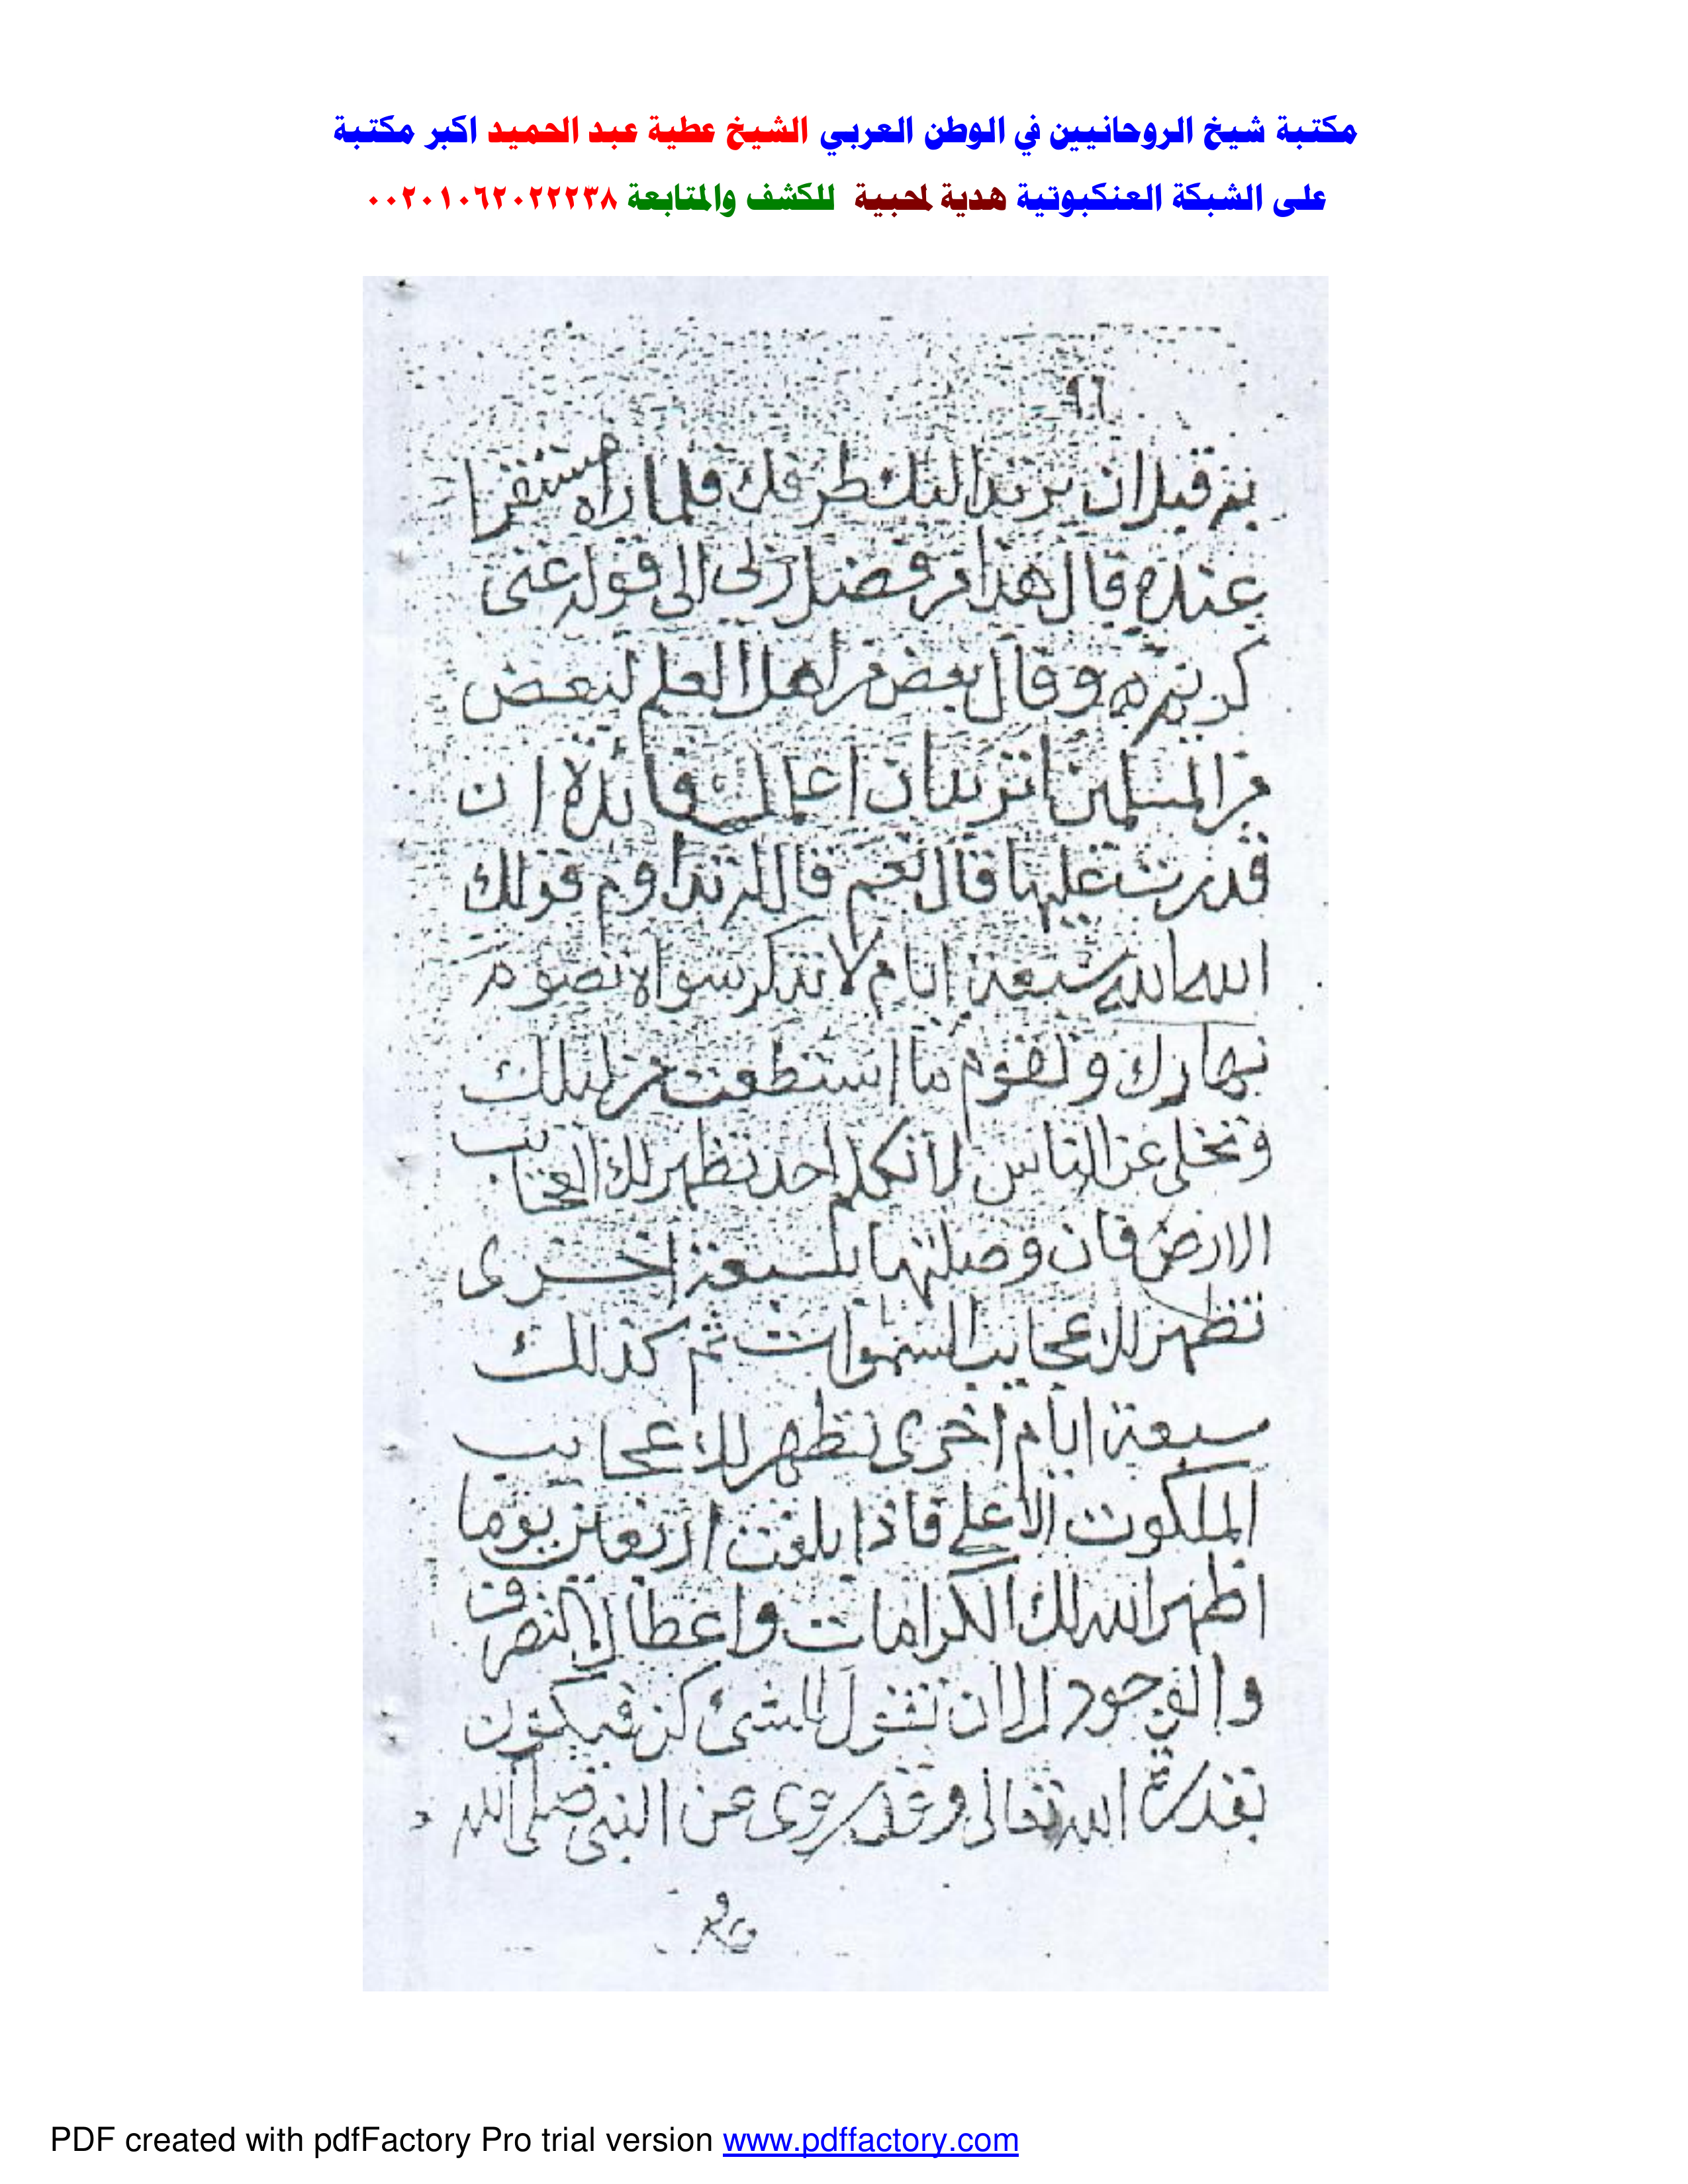 مكتبة شيخ الروحانيين في الوطن العربي الشيخ عطية عبد الحميد اكبر مكتبة
على الشبكة العنكبوتية هدية لمحبية للكشف والمتابعة ٠٠٢٠١٠٦٢٠٢٢٢٣٨
٩٦
به قبل ان يرتد اليك طرفك فلما راه مستقرا
عنده قال هذا من فضل ربي الى قوله غني
كريم وقال بعض من اهل العلم لبعض
من المسلمين اتريد ان اعلمك فائدة ان
قدرت عليها قال نعم قال له تداوم قولك
الله الله سبعة ايام لا تذكر سواه تصوم
نهارك وتقوم ما استطعت من ليلك
وتخلى عن الناس لا تكلم احد تظهر لك العجايب
الارض فان وصلتها بسبعة اخرى
تظهر لك عجايب السموات ثم كذلك
سبعة ايام اخرى تظهر لك عجايب
الملكوت الاعلى فاذا بلغت اربعين يوما
اظهر الله لك الكرامات واعطاك التصرف
الوجود ان تقول للشئ كن فيكون
بقدرة الله تعالى وقد روى عن النبي صلى الله
PDF created with pdfFactory Pro trial version www.pdffactory.com